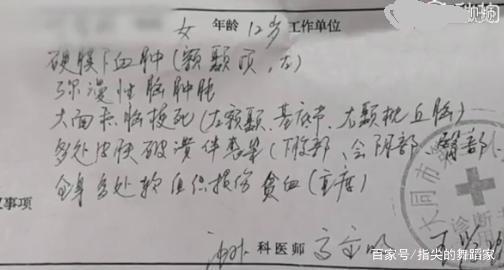 女 年龄 12岁 工作单位
硬膜下血肿(额颞顶,左)
弥漫性脑肿胀
大面积脑梗死(左额颞、基底节、左颞枕丘脑)
多处皮肤破溃伴感染(下腹部、会阴部、臀部
全身多处软组织损伤 贫血(重度)
事项
大同市
诊断
科医师
百家号/指尖的舞蹈家